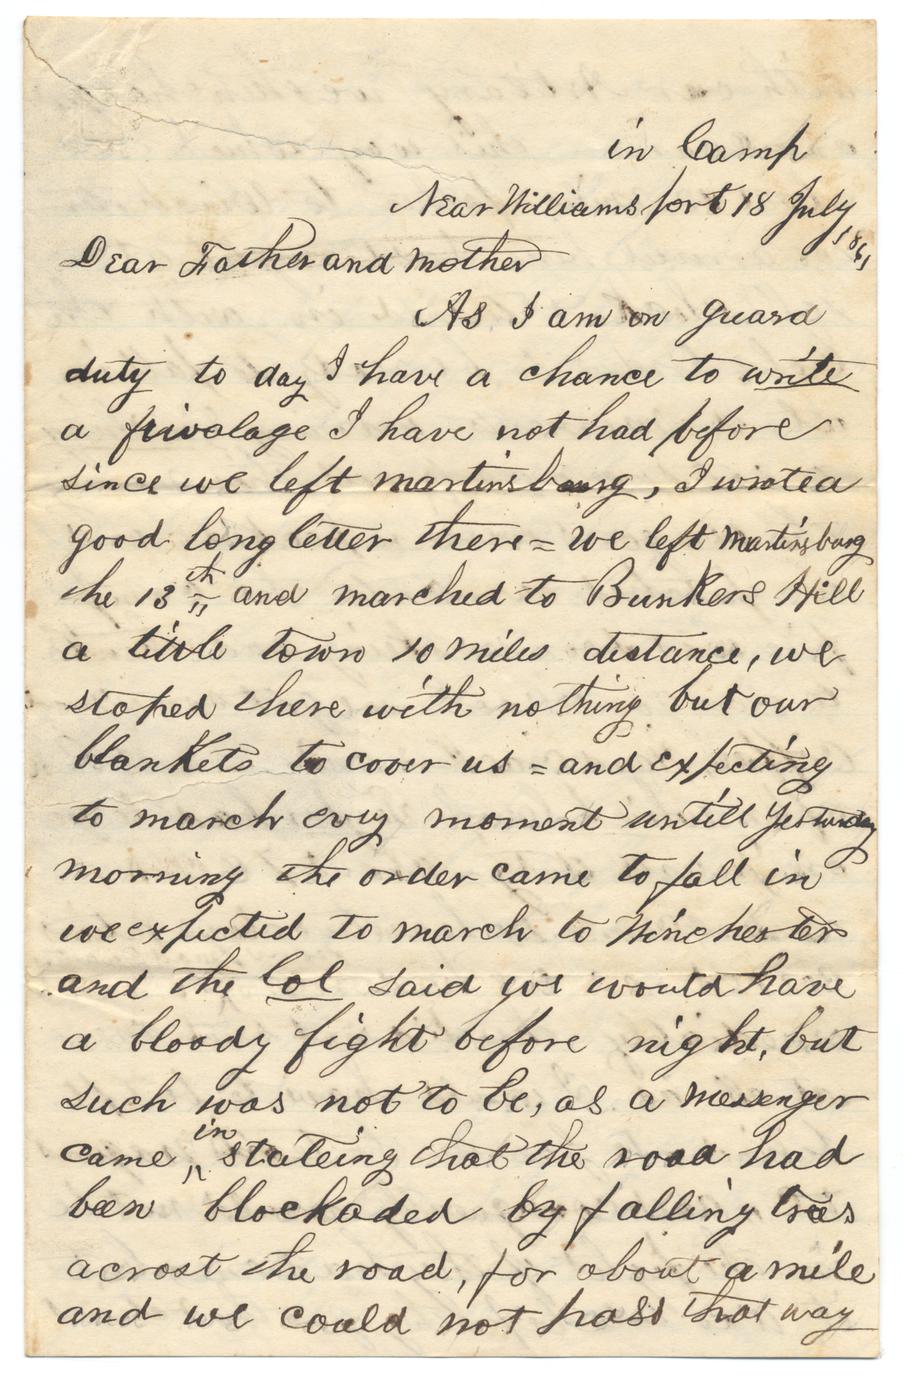 in Camp
Near Williamsport 18 July
1861
Dear Father and Mother
As I am on guard
duty to day I have a chance to write
a privalage I have not had before
since we left martinsburg, I wrote a
good long letter there = we left Martinsburg
the 13th and marched to Bunkers Hill
a little town 10 miles distance, we
stoped there with nothing but our
blankets to cover us = and expecting
to march evry moment untill yesturday
morning the order came to fall in
we expected to march to Winchester
and the Col said we would have
a bloody fight before night, but
such was not to be, as a messenger
came in stateing that the road had
been blockaded by falling trees
acrost the road, for about a mile
and we could not pass that way